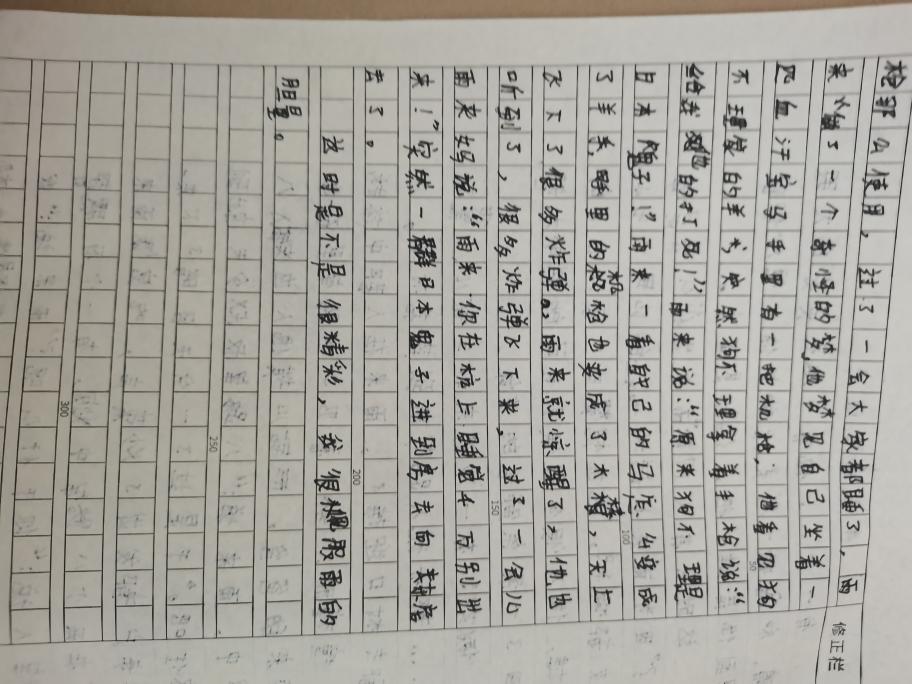 枪那么使用，过了一会大家都睡了，雨
来做了一个奇怪的梦，他梦见自己坐着一
匹血汗宝马手里有一把机枪，他看见狗
不理使的羊叉突然狗不理拿着手枪说：“
给我把他的打死！”雨来说：“原来狗不理是
日本鬼子！”雨来一看自己的马该么变成
了羊羔，睡里的机枪也变成了木棒，天上
飞下了很多炸弹。雨来就惊醒了，他也
听到了，很多炸弹飞下来，过了一会儿
雨来妈说：“雨来你在粒上睡觉千万别出
来！”突然一群日本鬼子进到房去向
去了。
这时是不是很精彩，我很佩服雨的
胆量。
修正栏
50
100
150
200
250
300